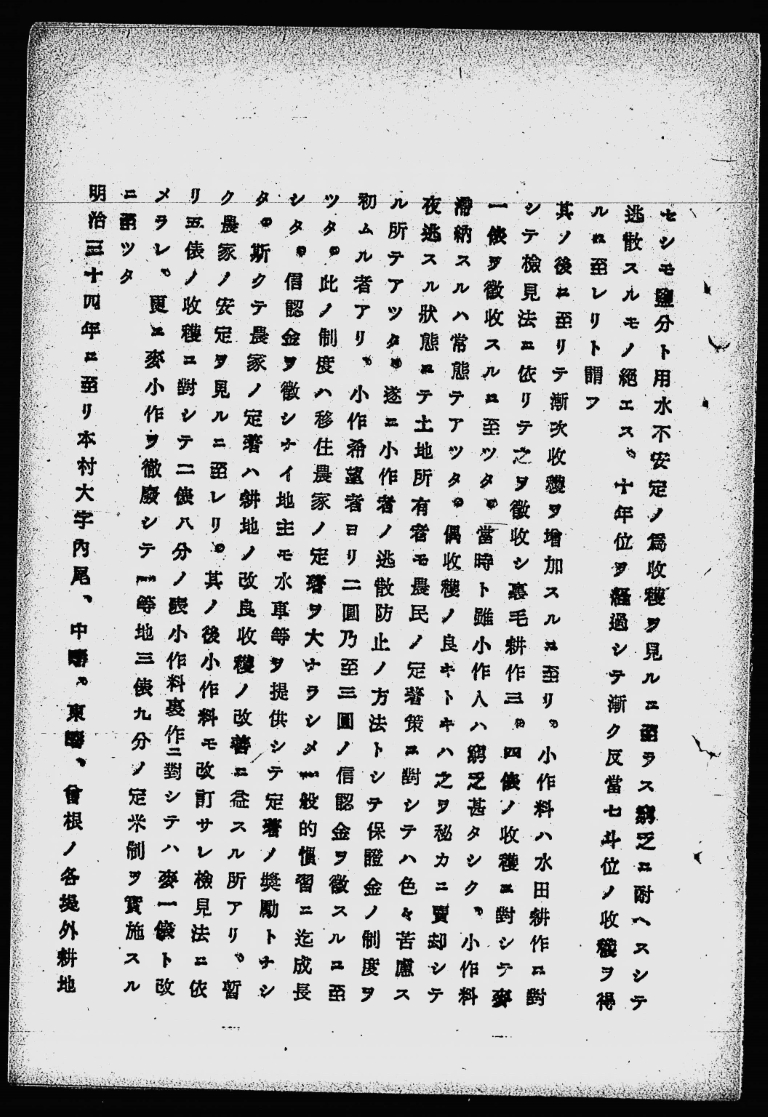 セシモ鹽分ト用水不安定ノ爲收穫ヲ見ルニ至ラス窮乏ニ耐ヘスシテ
逃散スルモノ絕エス、十年位ヲ經過シテ漸ク反當七斗位ノ收穫ヲ得
ルニ至レリト謂フ
其ノ後ニ至リテ漸次收穫ヲ增加スルニ至リ、小作料ハ水田耕作ニ對
シテ檢見法ニ依リテ之ヲ徵收シ裏毛耕作三、四俵ノ收穫ニ對シテ麥
一俵ヲ徵收スルニ至ツタ。當時ト雖小作人ハ窮乏甚タシク、小作料
滯納スルハ常態テアツタ。偶收穫ノ良キトキハ之ヲ秘カニ賣却シテ
夜逃スル狀態ニテ土地所有者モ農民ノ定著策ニ對シテハ色々苦慮ス
ル所テアツタ。遂ニ小作者ノ逃散防止ノ方法トシテ保證金ノ制度ヲ
初ムル者アリ、小作希望者ヨリ二圓乃至三圓ノ信認金ヲ徵スルニ至
ツタ。此ノ制度ハ移住農家ノ定著ヲ大ナラシメ一般的慣習ニ迄成長
シタ。信認金ヲ徵シナイ地主モ水車等ヲ提供シテ定著ノ奬勵トナシ
タ。斯クテ農家ノ定著ハ耕地ノ改良收穫ノ改善ニ益スル所アリ、暫
ク農家ノ安定ヲ見ルニ至レリ。其ノ後小作料モ改訂サレ檢見法ニ依
リ五俵ノ收穫ニ對シテ二俵八分ノ表小作料裏作ニ對シテハ麥一俵ト改
メラレ、更ニ麥小作ヲ徹廢シテ一等地三俵九分ノ定米制ヲ實施スル
ニ至ツタ
明治三十四年ニ至リ本村大字內尾、中疇、東疇、曾根ノ各堤外耕地